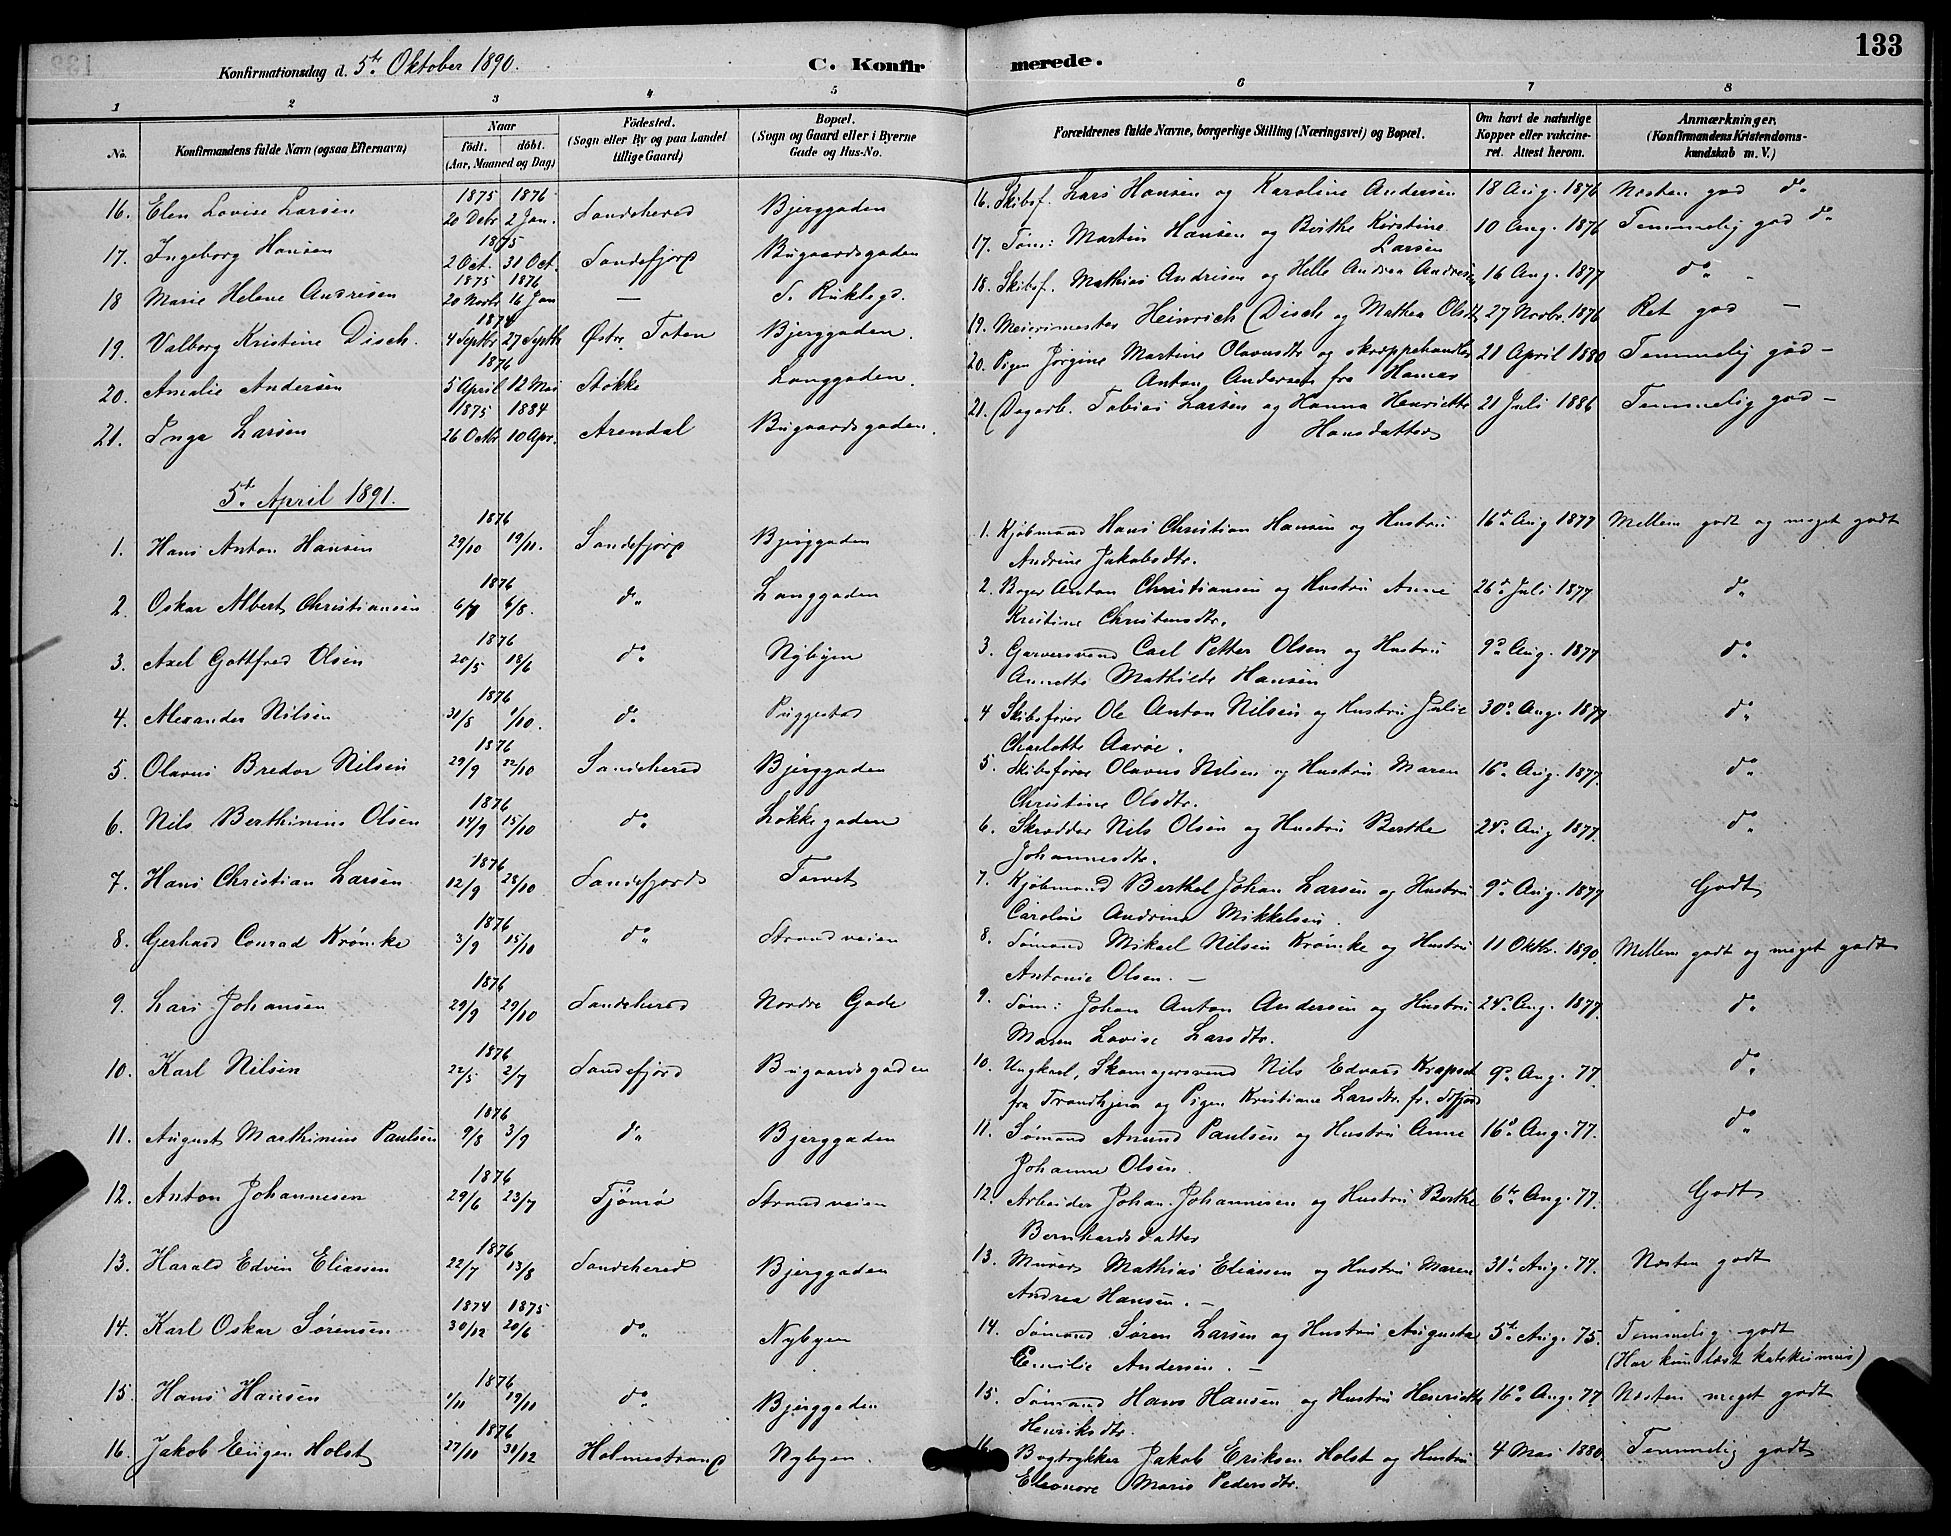 133
Konfirmationsdag d. 5te Oktober 1890.
C. Konfirmerede.
1 2 3 4 5 6 7 8
No.
Konfirmandens fulde Navn (ogsaa Efternavn)
Naar
födt. döbt.
(Aar, Maaned og Dag)
Födested.
(Sogn eller By og paa Landet
tillige Gaard)
Bopæl.
(Sogn og Gaard eller i Byerne
Gade og Hus-No.
Forældrenes fulde Navne, borgerlige Stilling (Næringsvei) og Bopæl.
Om havt de naturlige
Kopper eller vakcine-
ret. Attest herom.
Anmærkninger.
(Konfirmandens Kristendoms-
kundskab m. V.)
16. Elen Lovise Larsen 1875 20 Debr 1876 2 Jan. Sandeherred Bjerggaden 16. Skibsf. Lars Hansen og Karoline Andersen 18 Aug. 1876 Næsten god do
17. Ingeborg Hansen 1875 2 Oct. 31 Oct. Sandefjord Bugaardsgaden 17. Söm: Martin Hansen og Berthe Kirstine 10 Aug. 1876 Temmelig god do
Larsen
18 Marie Helene Andresen 1875 20 Novbr 1876 16 Jan — S. Ruklagd. 18. Skibsf. Mathias Andresen og Helle Andrea Andresen 16 Aug. 1877 do -
19. Valborg Kristine Disch. 1874 4 Septbr 27 Septbr Østr. Toten Bjerggaden. 19. Meierimester Heinrich Disch og Mathea Olsdt 27 Novbr. 1876 Ret god —
20. Amalie Andersen 1876 5 April 12 Mai Stokke Langgaden. 20. Pigen Jörgine Martine Olavusdtr og skræppehandler 21 April 1880 Temmelig god —
Anton Andersen fra Hamar
21. Inga Larsen 1875 26 Octbr 1884 10 Apr. Arendal Bugaardsgaden. 21. Dagarb. Tobias Larsen og Hanna Henriette 21 Juli 1886 Temmelig god —
Hansdatter
5te April 1891.
1. Hans Anton Hansen 1876 29/10 19/11. Sandefjord Bjerggaden 1. Kjöbmand Hans Christian Hansen og Hustru 16de Aug 1877 Mellem godt og meget godt
Andrine Jakobsdtr.
2. Oskar Albert Christiansen 1876 6/7 6/8. do Langgaden 2. Bager Anton Christiansen og Hustru Anne 26de Juli 1877. do
Kristine Christensdtr.
3. Axel Gottfred Olsen 1876 20/5 18/6 do Nybyen 3. Garversvend Carl Petter Olsen og Hustru 9de Aug. 1877 do
Annette Mathilde Hansen
4. Alexander Nilsen 1876 31/8 1/10. do Puggestad 4 Skibsförer Ole Anton Nilsen og Hustru Julie 30de Aug. 1877 do
Charlotte Aaröe.
5. Olavus Bredor Nilsen 1876 29/9 22/10 Sandeherred Bjerggaden 5. Skibsförer Olavus Nilsen og Hustru Maren 16de Aug. 1877. do
Christine Olsdtr.
6. Nils Berthinius Olsen 1876 14/9 15/10 do Lökkegaden 6. Skrædder Nils Olsen og Hustru Berthe 24de Aug 1877. do
Johannesdtr.
7. Hans Christian Larsen 1876 12/9 28/10 Sandefjord Torvet 7. Kjöbmand Berthel Johan Larsen og Hustru 9de Aug. 1877 Godt
Caroline Andrine Mikkelsen.
8. Gerhard Conrad Krömke 1876 3/9 15/10 do Strandveien 8. Sömand Mikael Nilsen Krömke og Hustru 11 Oktbr. 1890. Mellem godt og meget godt
Antonie Olsen. —
9. Lars Johansen 1876 29/9 29/10 Sandeherred Nordre Gade 9. Söm: Johan Anton Andersen og Hustru 24de Aug. 1877. do
Maren Lovise Larsdtr.
10. Karl Nilsen 1876 22/5 2/7 Sandefjord Bugaardsgaden 10. Ungkarl, Skomagersvend Nils Edvard Krapset 9de Aug. 77. do
fra Trondhjem og Pigen Kristiane Larsdtr. fr. Sfjord
11. August Marthinius Paulsen 1876 9/8 3/9 do Bjerggaden 11. Sömand Amund Paulsen og Hustru Anne 16de Aug. 77. do
Johanne Olsen.
12. Anton Johannesen 1876 29/6 23/7 Tjömö Strandveien 12. Arbeider Johan Johannesen og Hustru Berthe 6te Aug. 77. Godt
Bernhardsdatter
13. Harald Edvin Eliassen 1876 22/7 13/8 Sandeherred Bjerggaden 13. Murer Mathias Eliassen og Hustru Maren 31te Aug. 77. Næsten godt
Andrea Hansen. —
14. Karl Oskar Sørensen 1874 30/12 1875 20/6 do Nybyen 14. Sömand Sören Larsen og Hustru Augusta 5te Aug. 75. Temmelig godt
Emilie Andersen. — (Har kun læst katekismus)
15. Hans Hansen 1876 1/10 19/10 do Bjerggaden 15. Sömand Hans Hansen og Hustru Henriette 16de Aug. 77 Næsten meget godt
Henriksdtr.
16. Jakob Eugen Holst 1876 27/10 31/12 Holmestrand Nybyen. 16. Bogtrykker Jakob Eriksen Holst og Hustru 4 Mai 1880. Temmelig godt
Eleonore Marie Pedersdtr.